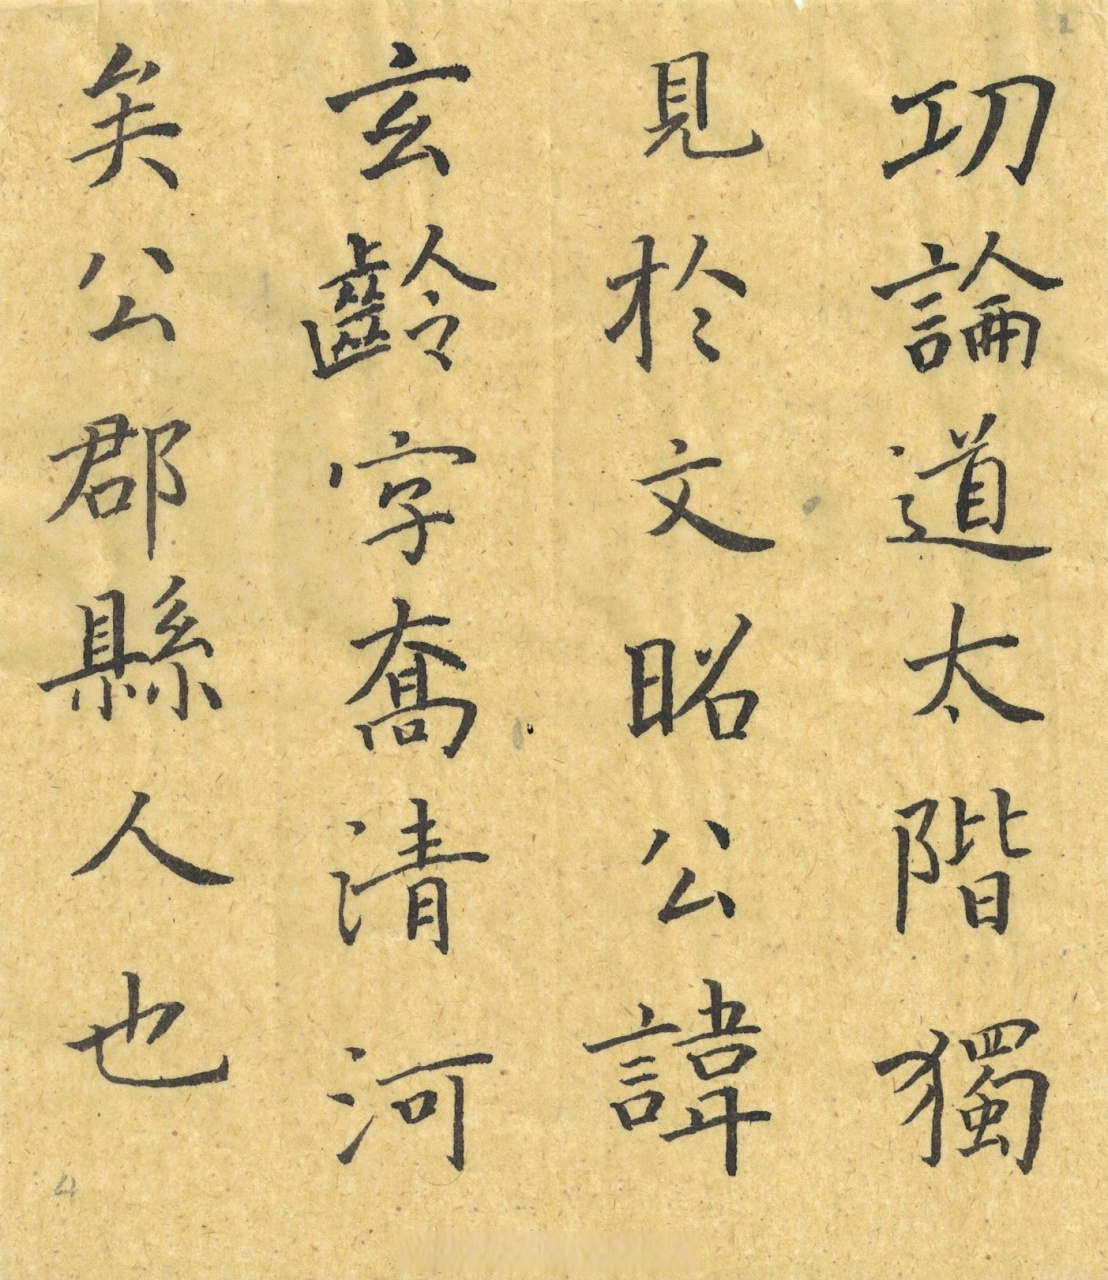 功論道太階獨
見於文昭公諱
玄齡字喬清河
矣公郡縣人也
4